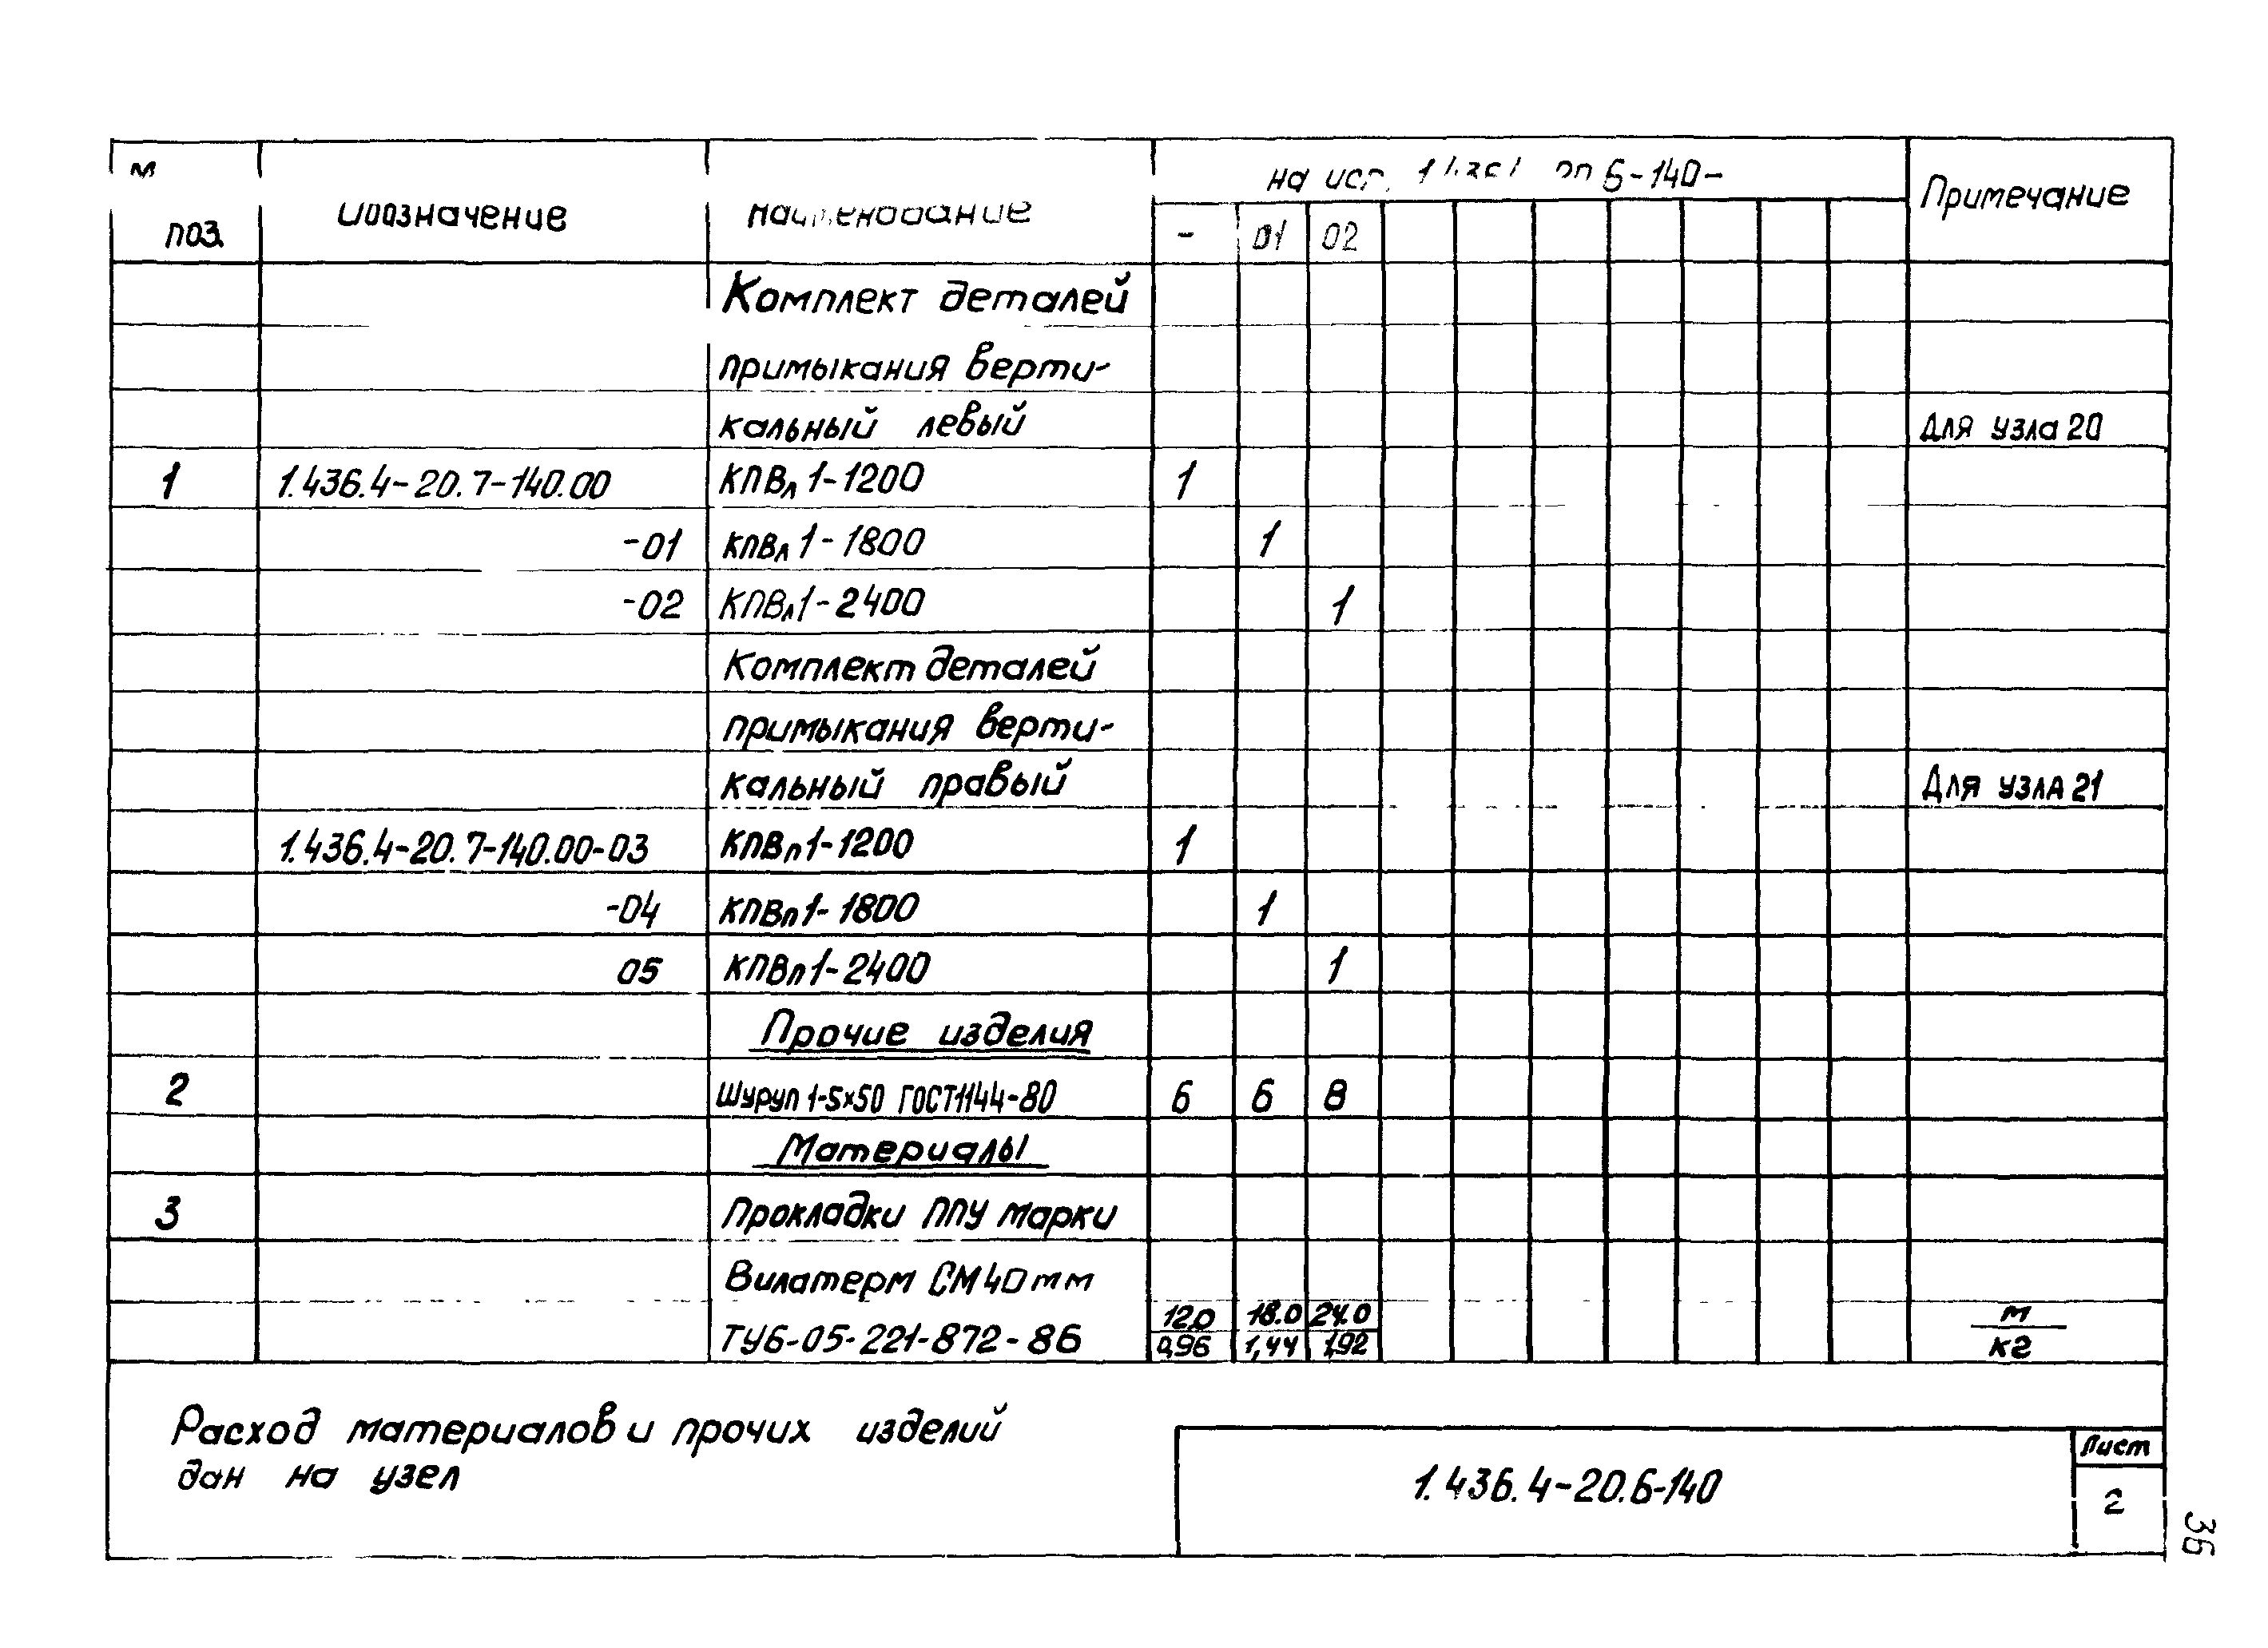 поз. Обозначение Наименование на исп. 6-140- Примечание
- 01 02
Комплект деталей
примыкания верти-
кальный левый Для узла 20
1 1.436.4-20.7-140.00 КПВл 1-1200 1
-01 КПВл 1-1800 1
-02 КПВл 1-2400 1
Комплект деталей
примыкания верти-
кальный правый Для узла 21
1.436.4-20.7-140.00-03 КПВп 1-1200 1
-04 КПВп 1-1800 1
05 КПВп 1-2400 1
Прочие изделия
2 Шуруп 1-5х50 ГОСТ1144-80 6 6 8
Материалы
3 Прокладки ППУ марки
Вилатерм СМ 40мм
12.0 18.0 24.0 м
ТУ6-05-221-872-86 0,96 1,44 1,92 кг
Расход материалов и прочих изделий
дан на узел
1.436.4-20.6-140 Лист
2
36